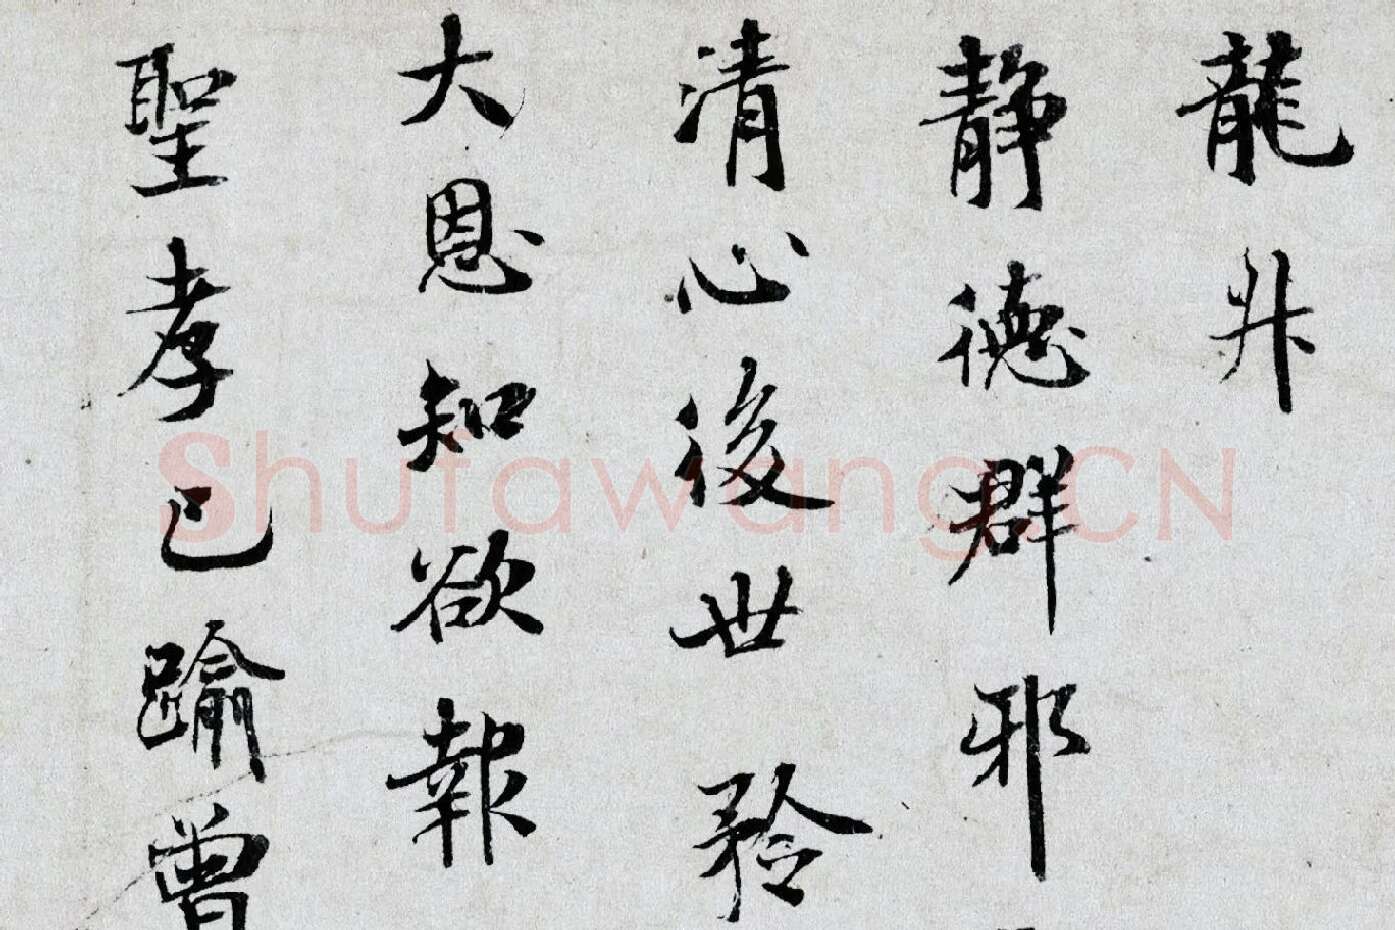 龍升
静德群邪
清心後世矜
大恩知欲報
聖孝已踰曾
Shufawang.CN